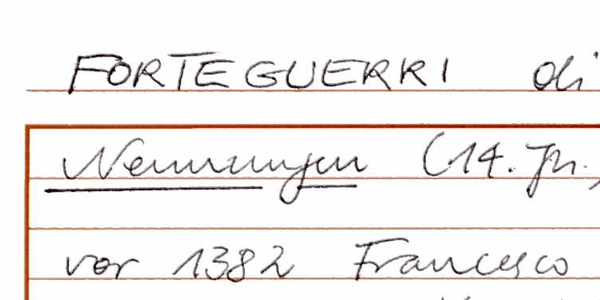 FORTEGUERRI di
Nennungen (14. Jh.,
vor 1382 Francesco